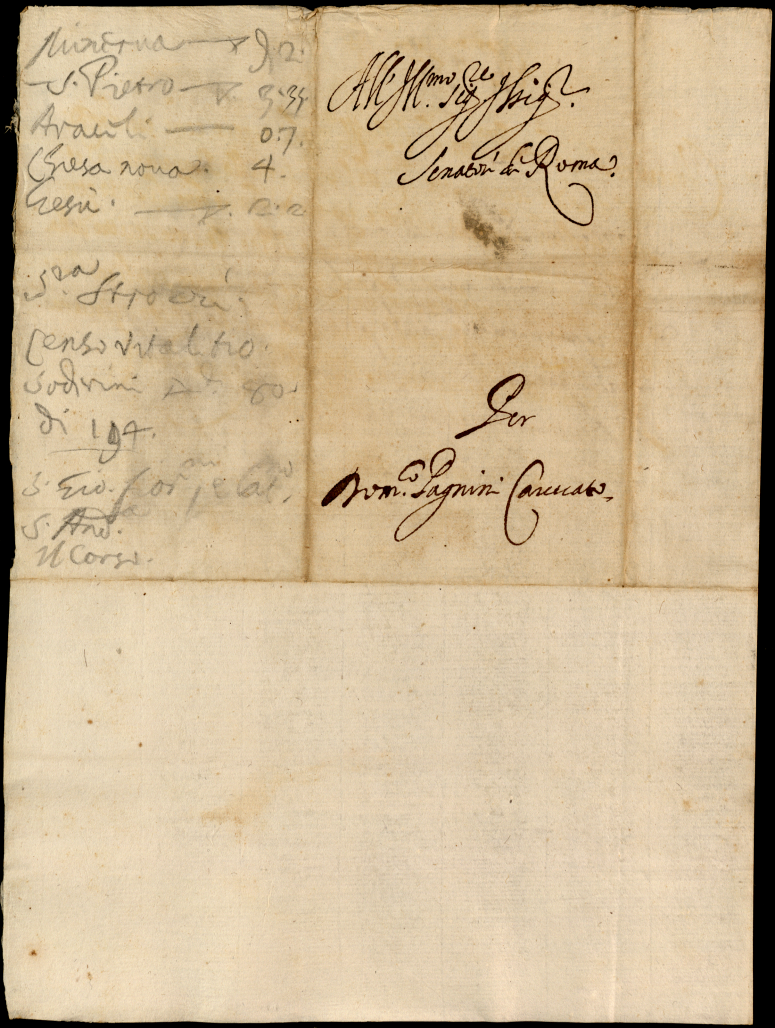 Minerva 9. 2.
S. Pietro 3. 35
Araceli 0. 7.
Chiesa nova 4.
Giesù. 2. 2
S.ra Strozzi.
Censo vitalitio
Soderini 80
di 194.
S. Gio.
S. And.a
Il Corso.
All' Ill.mo Sig.re
Senator di Roma.
Per
Dom.co Pagnini Carcerato.